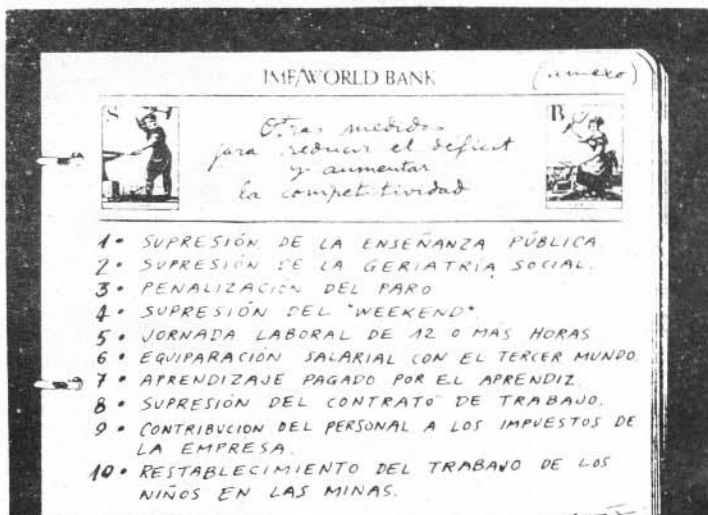 IMF/WORLD BANK
(anexo)
S
B
Otras medidas
para reducir el déficit
y aumentar
la competitividad
1• SUPRESIÓN DE LA ENSEÑANZA PÚBLICA
2• SUPRESIÓN DE LA GERIATRÍA SOCIAL.
3• PENALIZACIÓN DEL PARO
4• SUPRESIÓN DEL "WEEKEND".
5• JORNADA LABORAL DE 12 O MAS HORAS
6• EQUIPARACIÓN SALARIAL CON EL TERCER MUNDO
7• APRENDIZAJE PAGADO POR EL APRENDIZ
8• SUPRESIÓN DEL CONTRATO DE TRABAJO.
9• CONTRIBUCION DEL PERSONAL A LOS IMPUESTOS DE
LA EMPRESA.
10• RESTABLECIMIENTO DEL TRABAJO DE LOS
NIÑOS EN LAS MINAS.